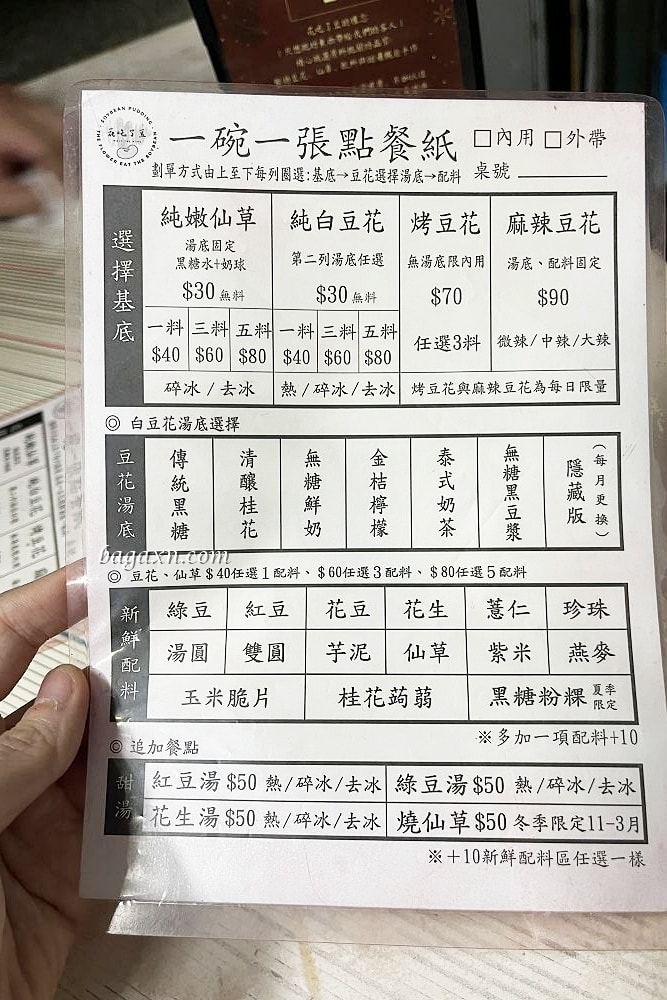 花吃了豆的理念
SOYBEAN PUDDING
花吃了豆
THE FLOWER EAT THE SOYBEAN
一碗一張點餐紙 □內用 □外帶
劃單方式由上至下每列圈選:基底→豆花選擇湯底→配料 桌號
選擇基底
純嫩仙草 純白豆花 烤豆花 麻辣豆花
湯底固定
黑糖水+奶球 第二列湯底任選 無湯底限內用 湯底、配料固定
$30 無料 $30 無料 $70 $90
一料 三料 五料 一料 三料 五料 任選3料 微辣/中辣/大辣
$40 $60 $80 $40 $60 $80
碎冰/去冰 熱/碎冰/去冰 烤豆花與麻辣豆花為每日限量
◎ 白豆花湯底選擇
豆花湯底
傳統黑糖
清釀桂花
無糖鮮奶
金桔檸檬
泰式奶茶
無糖黑豆漿
隱藏版
(每月更換)
bagaxn.com
◎ 豆花、仙草$40任選1配料、$60任選3配料、$80任選5配料
新鮮配料
綠豆 紅豆 花豆 花生 薏仁 珍珠
湯圓 雙圓 芋泥 仙草 紫米 燕麥
玉米脆片 桂花蒟蒻 黑糖粉粿 夏季限定
※多加一項配料+10
◎ 追加餐點
甜湯
紅豆湯$50 熱/碎冰/去冰 綠豆湯$50 熱/碎冰/去冰
花生湯$50 熱/碎冰/去冰 燒仙草$50 冬季限定11-3月
※+10新鮮配料區任選一樣